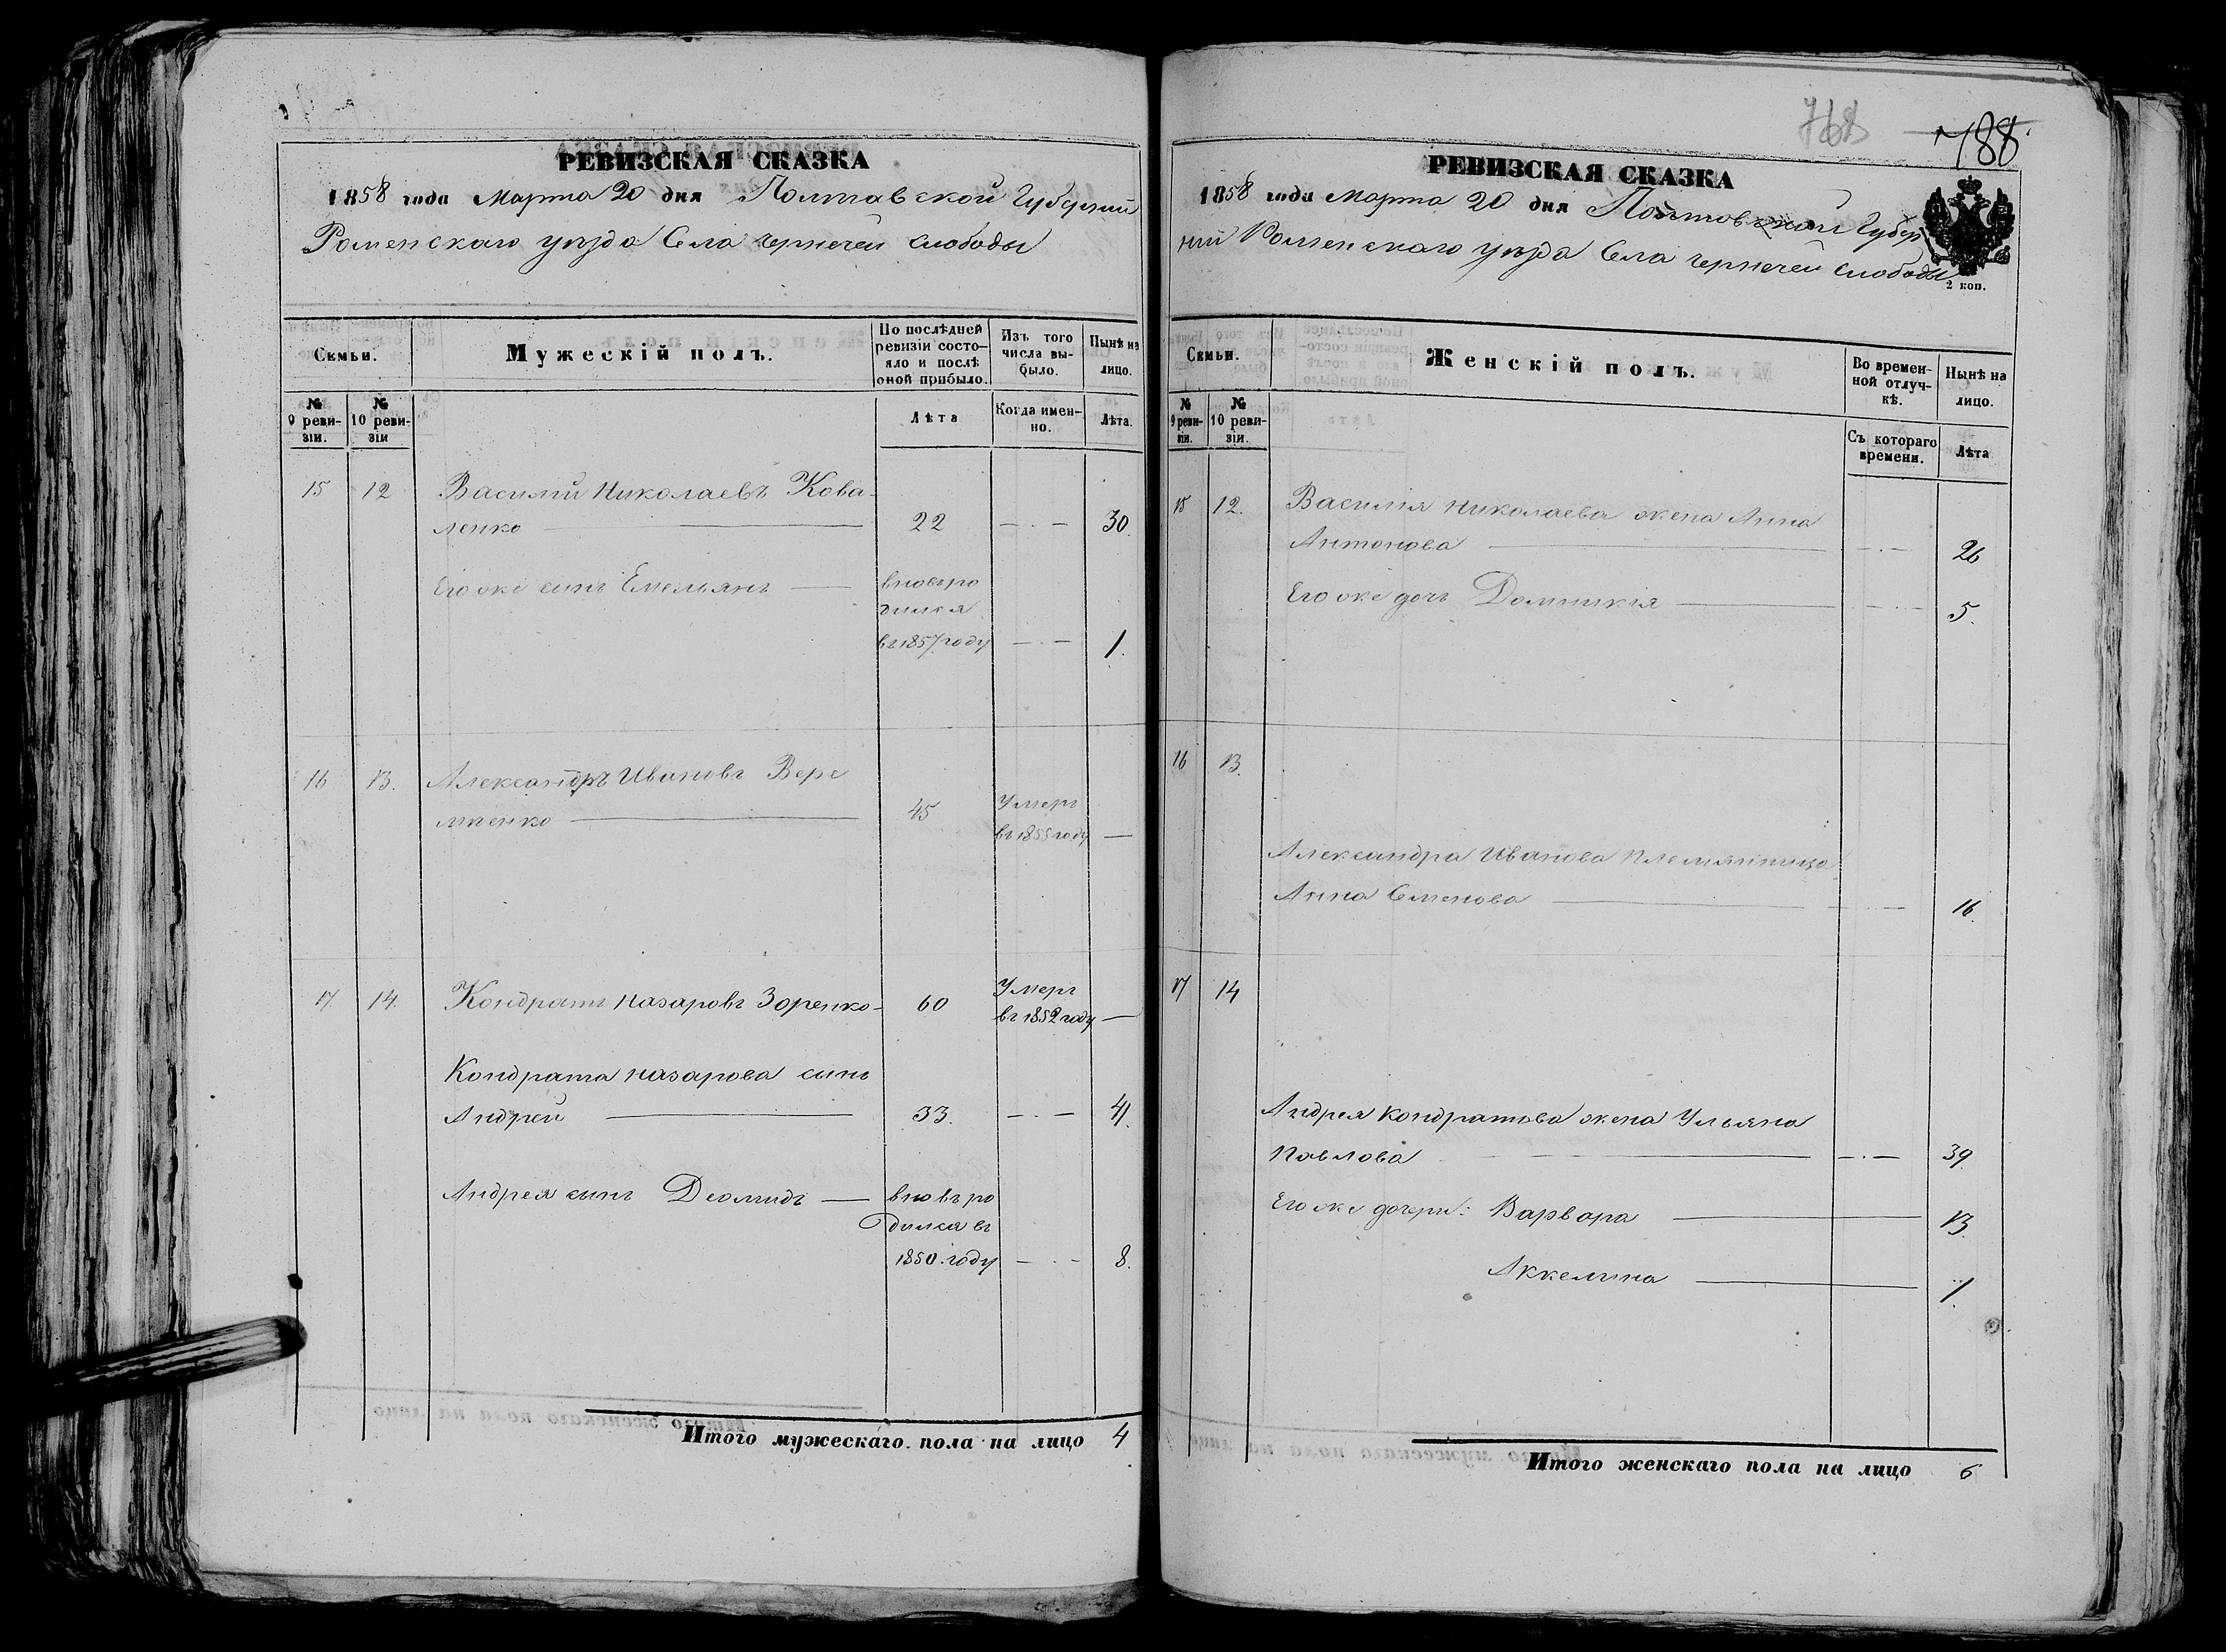 РЕВИЗСКАЯ СКАЗКА
1858 года Марта 20 дня Полтавской Губернии
Роменского уѣзда Села Чернечей слободы
Семьи.
Мужескій полъ.
По послѣдней ревизіи состояло и послѣ оной прибыло.
Изъ того числа выбыло.
Нынѣ на лицо.
№ 9 ревизіи.
№ 10 ревизіи
Лѣта
Когда именно.
Лѣта.
15 12 Василий Николаевъ Кова-
ленко 22 — . — 30.
Его же сынъ Емельянъ — вновь ро
дился
въ 1857 году — . — 1.
16 13. Александръ Ивановъ Вере
мѣенко 45 Умеръ
въ 1855 году —
17. 14. Кондратъ Назаровъ Зоренко- 60 Умеръ
въ 1852 году —
Кондрата Назарова сынъ
Андрей 33. — . — 41.
Андрея сынъ Деомидъ — вновь ро
дился въ
1850. году — . — 8.
Итого мужескаго пола на лицо 4
768 788
РЕВИЗСКАЯ СКАЗКА
1858 года Марта 20 дня Полтавской Губер
ніи Роменскаго уѣзда Села Чернечей слободы
2 коп.
Семьи.
Женскій полъ.
Во временной отлучкѣ.
Нынѣ на лицо.
№ 9 ревизіи.
№ 10 ревизіи.
Съ котораго времени.
Лѣта
15 12. Василія Николаева жена Анна
Антонова — . — 26
Его же дочь Домникія — . — 5.
16 13.
Александра Иванова племянница
Анна Семенова — . — 16.
17 14
Андрея Кондратова жена Ульяна
Павлова — . — 39
Его же дочери: Варвара 13.
Аккелина 1.
Итого женскаго пола на лицо 6